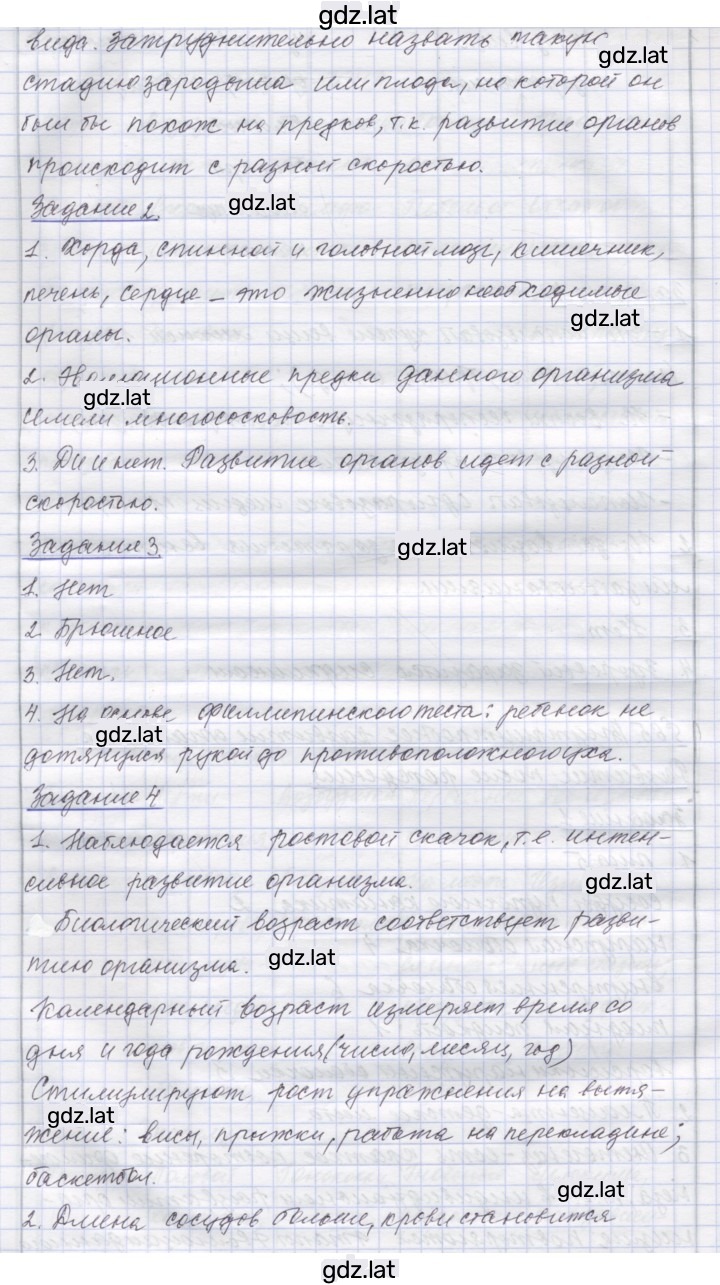 gdz.lat
вида. Затруднительно назвать такую
gdz.lat
стадию зародыша или плода, на которой он
был бы похож на предков, т.к. развитие органов
происходит с разной скоростью.
Задание 2. gdz.lat
1. Хорда, спинной и головной мозг, кишечник,
печень, сердце – это жизненно необходимые
gdz.lat
органы.
2. Эволюционные предки данного организма
gdz.lat
имели многососковость.
3. Да и нет. Развитие органов идет с разной
скоростью.
Задания 3. gdz.lat
1. Нет
2. Брюшное
3. Нет.
4. На основе филлипинского теста: ребенок не
gdz.lat
дотянулся рукой до противоположного уха.
Задание 4
1. Наблюдается ростовой скачок, т.е. интен-
сивное развитие организма. gdz.lat
Биологический возраст соответствует разви-
тию организма. gdz.lat
Календарный возраст измеряет время со
дня и года рождения (число, месяц, год)
Стимулируют рост упражнения на вытя-
gdz.lat
жение: висы, прыжки, работа на перекладине;
баскетбол. gdz.lat
2. Длина сосудов больше, крови становится
gdz.lat